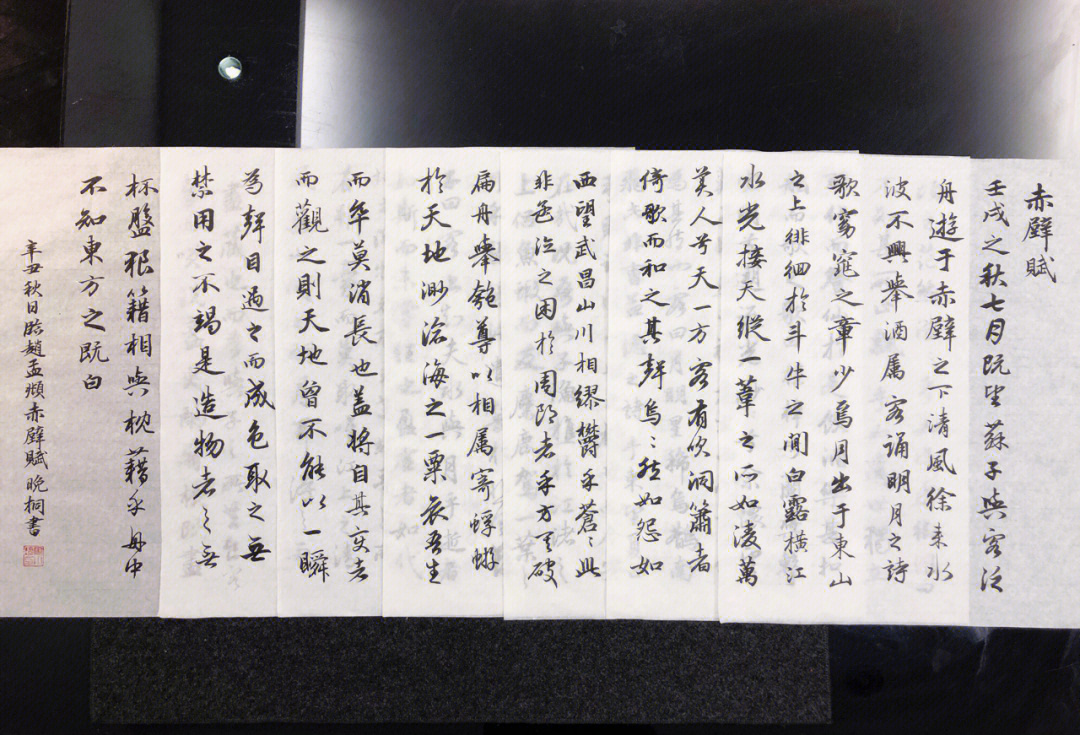 赤壁賦
壬戌之秋七月既望蘇子與客泛
舟遊于赤壁之下清風徐来水
波不興舉酒属客誦明月之詩
歌窈窕之章少焉月出于東山
之上徘徊於斗牛之間白露横江
水光接天縱一葦之所如凌萬
美人兮天一方客有吹洞簫者
倚歌而和之其聲烏〻然如怨如
西望武昌山川相繆欝乎蒼〻此
非孟德之困於周郎者乎方其破
扁舟舉匏尊以相属寄蜉蝣
於天地渺滄海之一粟哀吾生
而卒莫消長也盖將自其变者
而觀之則天地曾不能以一瞬
為聲目遇之而成色取之無
禁用之不竭是造物者之無
杯盤狼籍相與枕藉乎舟中
不知東方之既白
辛丑秋日臨趙孟頫赤壁賦晚桐書